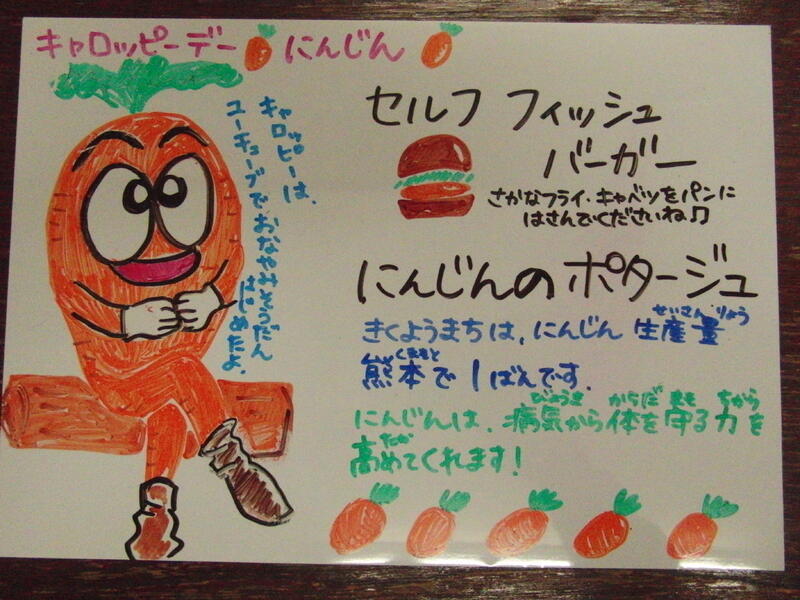 キャロッピーデー にんじん
キャロッピーは、
ユーチューブで おなやみそうだん
はじめたよ。
セルフ フィッシュ
バーガー
さかなフライ・キャベツをパンに
はさんでくださいね♫
にんじんのポタージュ
せいさんりょう
きくようまちは、にんじん 生産量
くまもと
熊本で1ばんです。
びょうき からだ まも ちから
にんじんは、病気から体を守る力を
たか
高めてくれます!